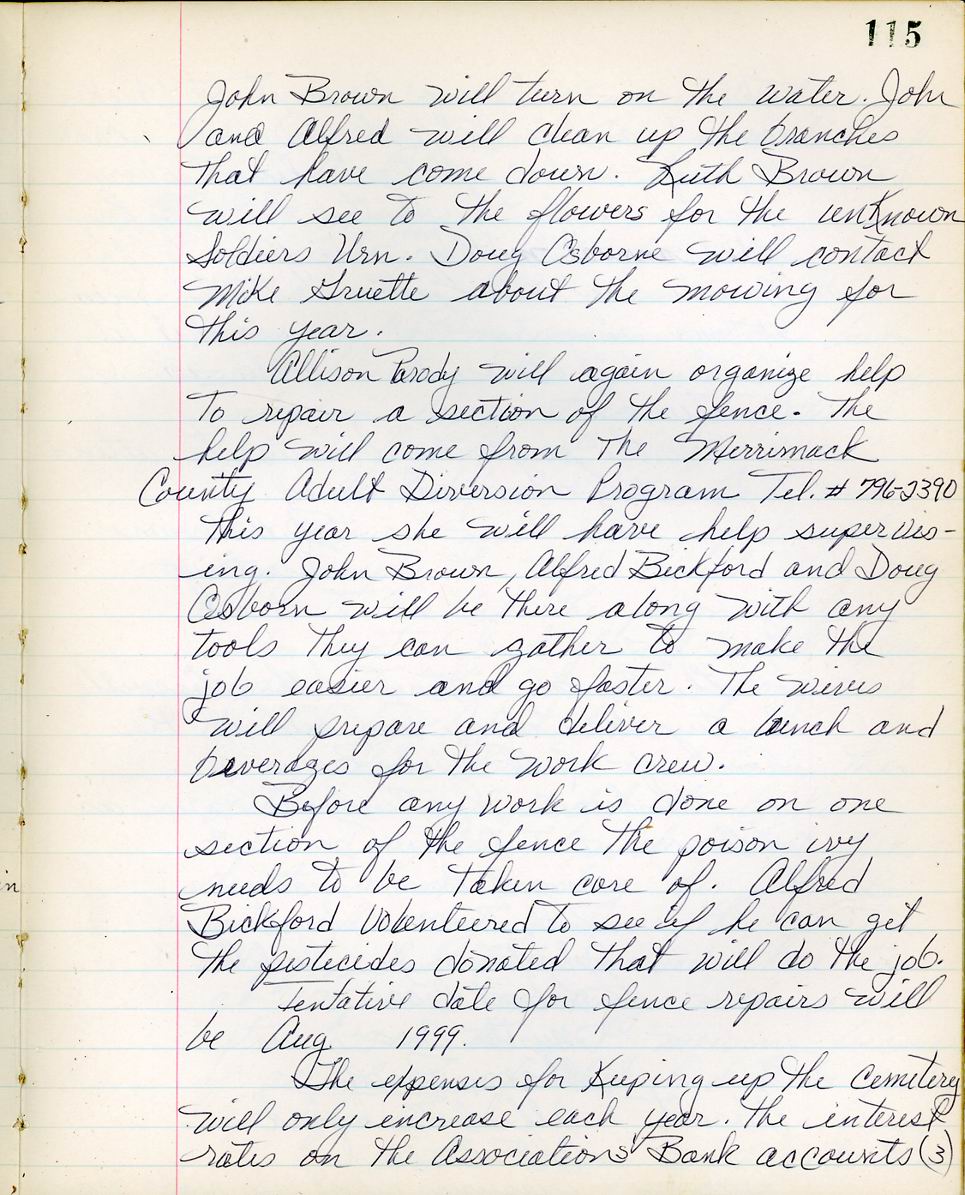 115
John Brown will turn on the water. John
and Alfred will clean up the branches
that have come down. Ruth Brown
will see to the flowers for the unknown
Soldiers Urn. Doug Osborne will contact
Mike Gruette about the mowing for
this year.
Allison Parody will again organize help
to repair a section of the fence. The
help will come from the Merrimack
County Adult Diversion Program Tel. # 796-2390
This year she will have help supervis-
ing. John Brown, Alfred Bickford and Doug
Osborn will be there along with any
tools they can gather to make the
job easier and go faster. The wives
will prepare and deliver a lunch and
beverages for the work crew.
Before any work is done on one
section of the fence the poison ivy
needs to be taken care of. Alfred
Bickford Volenteered to see if he can get
the pesticides donated that will do the job.
Tentative date for fence repairs will
be Aug 1999.
The expenses for Keeping up the Cemetery
will only increase each year. The interest
rates on the Associations Bank accounts (3)
in